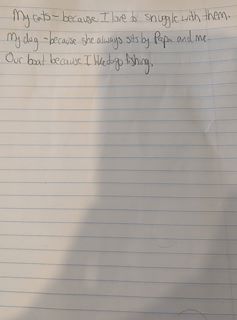 My cats - because I love to snuggle with them.
My dog - because she always sits by Papa and me.
Our boat because I like to go fishing.